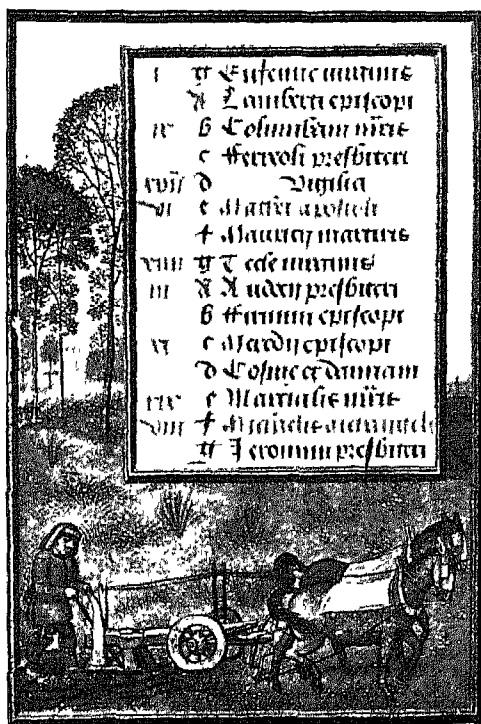 i g Eufemie martiris
A Lamberti episcopi
ix b Columbani mris
c Ferreoli presbiteri
xvii d Vigilia
vi e Mathei apostoli
f Mauricij martiris
xiiii g Tecle martiris
iii A Audoeni presbiteri
b Firmini episcopi
xi c episcopi
d Cosme et Damiani
xix e Martialis mris
viii f Michaelis archangeli
g Jeronimi presbiteri